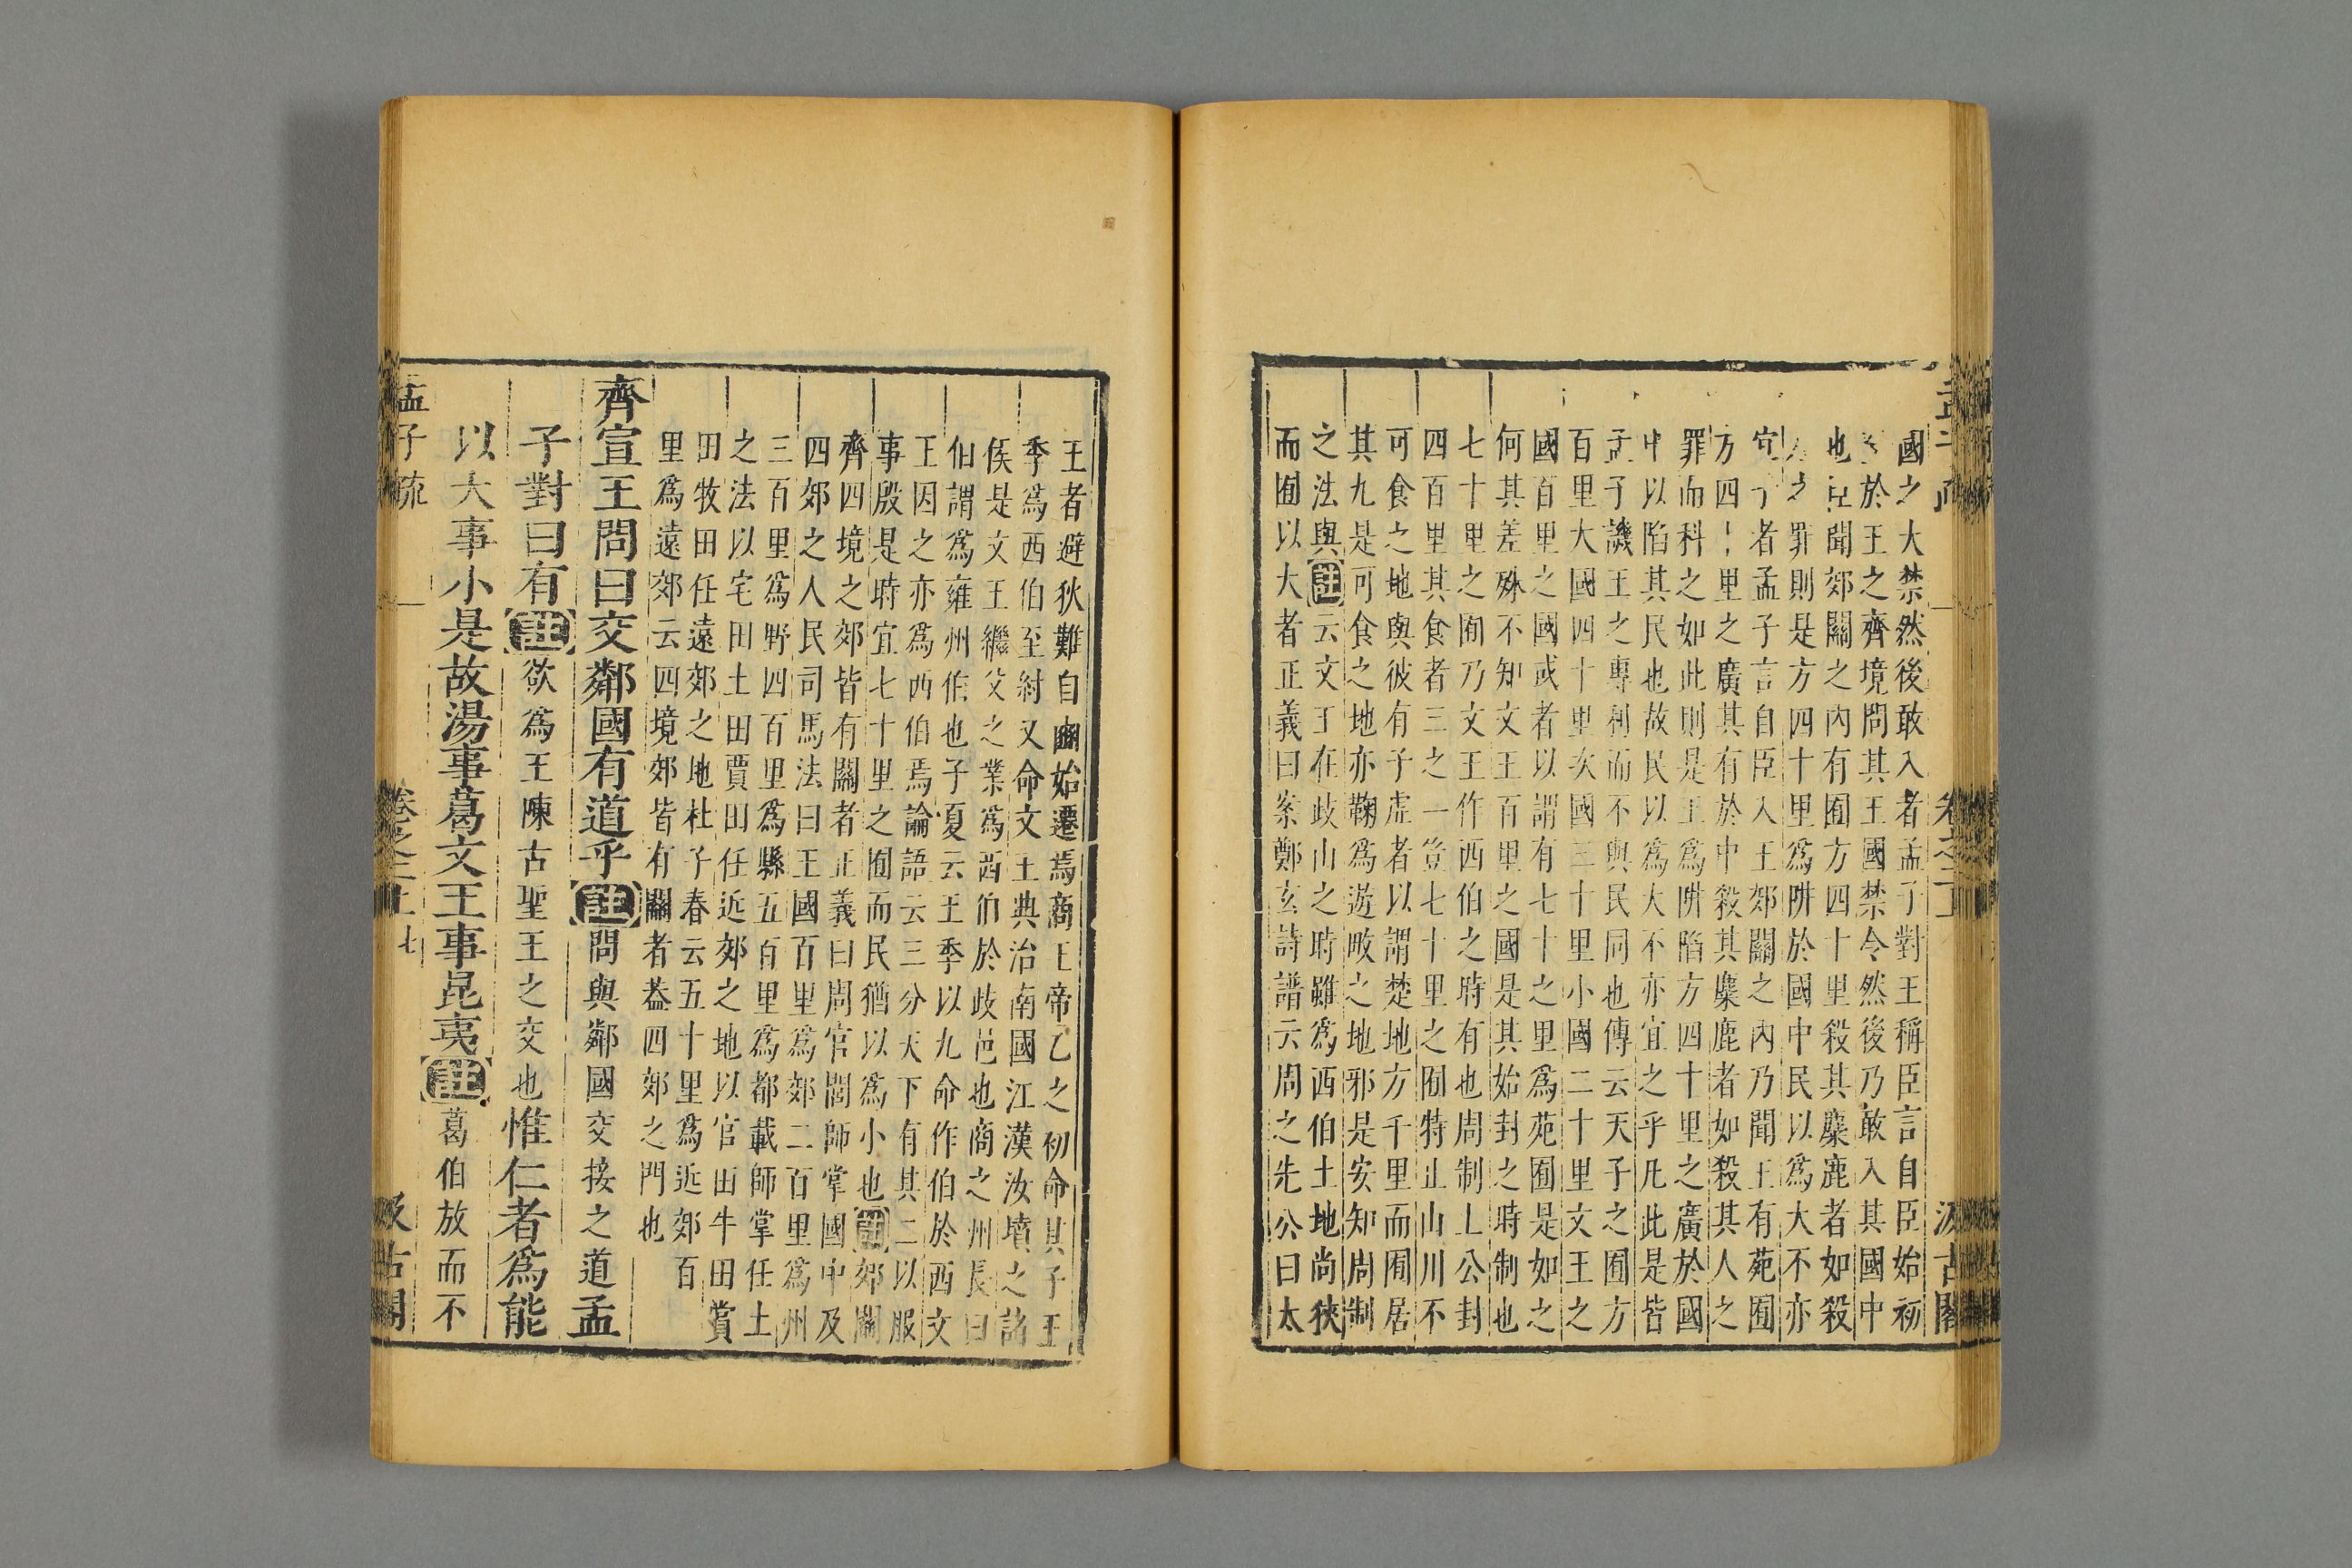 國之大禁然後敢入者孟子對王稱臣言自臣始初
於王之齊境問其王國禁令然後乃敢入其國中
也臣聞郊關之內有囿方四十里殺其麋鹿者如殺
之罪則是方四十里爲阱於國中民以爲大不亦
宜乎者孟子言自臣入王郊關之內乃聞王有苑囿
方四十里之廣其有於中殺其麋鹿者如殺其人之
罪而科之如此則是王爲阱陷方四十里之廣於國
中以陷其民也故民以爲大不亦宜之乎凡此是皆
孟子譏王之專利而不與民同也傳云天子之囿方
百里大國四十里次國三十里小國二十里文王之
國百里之國或者以謂有七十之里爲苑囿是如之
何其差殊不知文王百里之國是其始封之時制也
七十里之囿乃文王作西伯之時有也周制上公封
四百里其食者三之一豈七十里之囿特止山川不
可食之地與彼有子虛者以謂楚地方千里而囿居
其九是可食之地亦鞠爲遊畋之地邪是安知周制
之法與註云文王在歧山之時雖爲西伯土地尚狹
而囿以大者正義曰案鄭玄詩譜云周之先公曰太
王者避狄難自豳始遷焉商王帝乙之初命其子王
季爲西伯至紂又命文王典治南國江漢汝墳之諸
侯是文王繼父之業爲西伯於歧邑也商之州長曰
伯謂爲雍州伯也子夏云王季以九命作伯於西文
王因之亦爲西伯焉論語云三分天下有其二以服
事殷是時宜七十里之囿而民猶以爲小也註郊關
齊四境之郊皆有關者正義曰周官閭師掌國中及
四郊之人民司馬法曰王國百里爲郊二百里爲州
三百里爲野四百里爲縣五百里爲都載師掌任土
之法以宅田土田賈田任近郊之地以官田牛田賞
田牧田任遠郊之地杜子春云五十里爲近郊百
里爲遠郊云四境郊皆有關者葢四郊之門也
齊宣王問曰交鄰國有道乎註問與鄰國交接之道孟
子對曰有註欲爲王陳古聖王之交也惟仁者爲能
以大事小是故湯事葛文王事昆夷註葛伯放而不
孟子疏 卷之二上 七 汲古閣